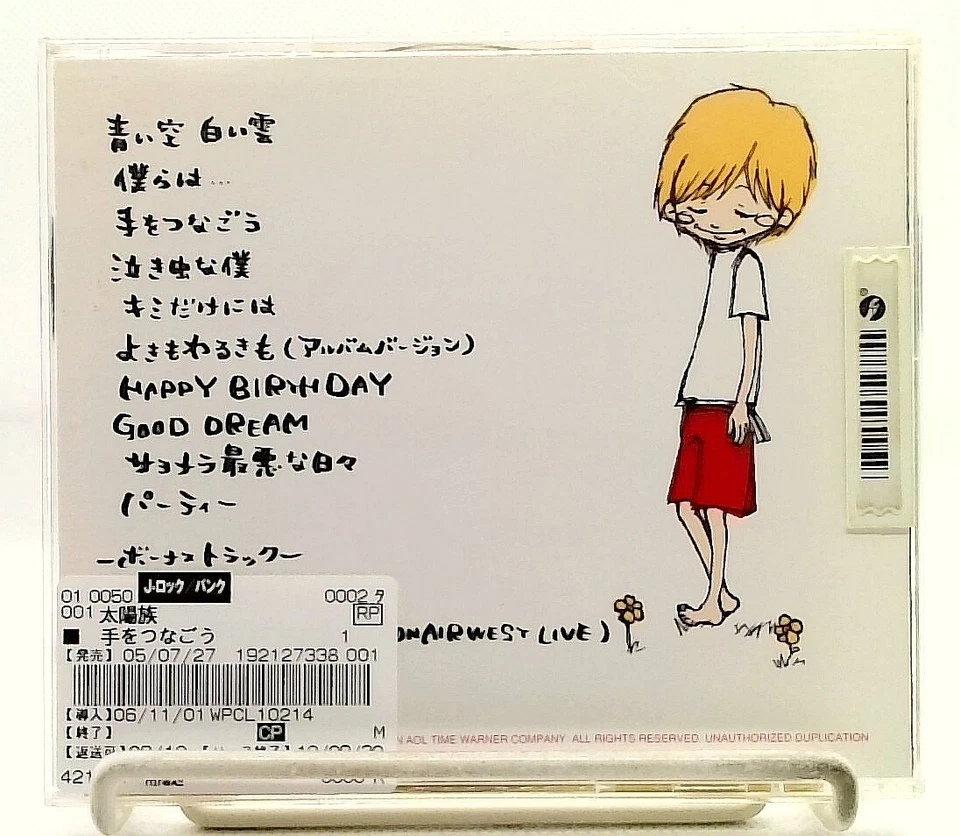 青い空 白い雲
僕らは……
手をつなごう
泣き虫な僕
キミだけには
よきもわるきも(アルバムバージョン)
HAPPY BIRTHDAY
GOOD DREAM
サヨナラ最悪な日々
パーティー
ーボーナストラックー
ONAIRWEST LIVE)
J-ロック/パンク
01 0050 0002 タ
001 太陽族 RP
■ 手をつなごう 1
【発売】05/07/27 192127338 001
【導入】06/11/01 WPCL10214
【終了】 CP M
【返送可】
421
N AOL TIME WARNER COMPANY. ALL RIGHTS RESERVED. UNAUTHORIZED DUPLICATION